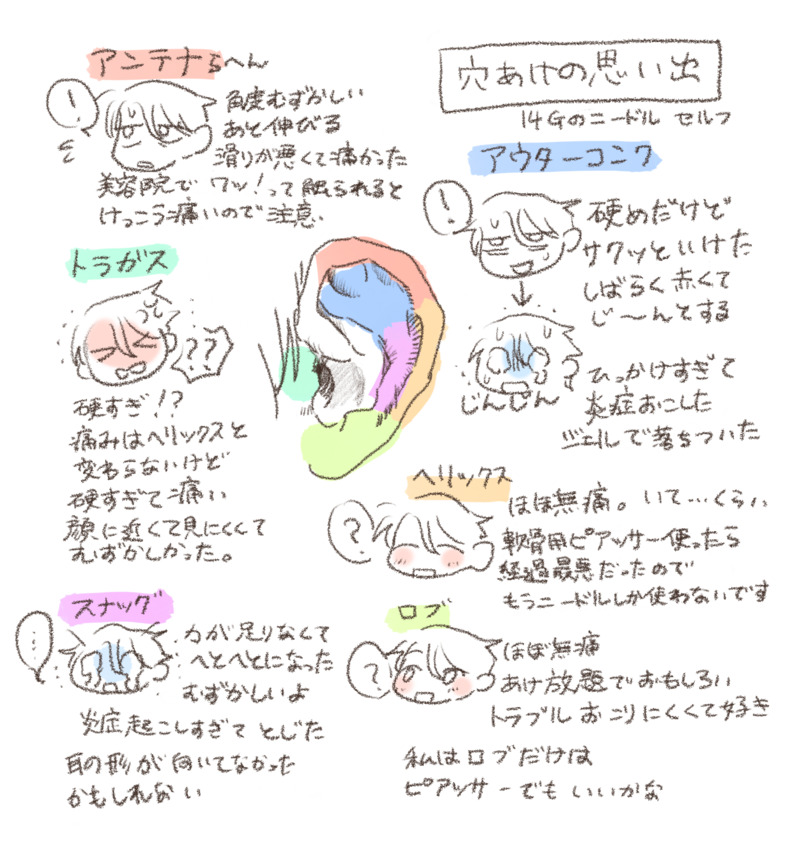 穴あけの思い出
14Gのニードル セルフ
アンテナらへん
!
角度むずかしい
あと伸びる
滑りが悪くて痛かった
美容院で ワッ!って触られると
けっこう痛いので注意
アウターコンク
!
硬めだけど
サクッといけた
しばらく赤くて
じ〜んとする
じんじん
ひっかけすぎて
炎症おこした
ジェルで落ちついた
トラガス
??
硬すぎ!?
痛みはヘリックスと
変わらないけど
硬すぎて痛い
顔に近くて見にくくて
むずかしかった。
ヘリックス
?
ほぼ無痛。いて…くらい
軟骨用ピアッサー使ったら
経過最悪だったので
もうニードルしか使わないです
スナッグ
…
力が足りなくて
へとへとになった
むずかしいよ
炎症起こしすぎて とじた
耳の形が向いてなかった
かもしれない
ロブ
?
ほぼ無痛
あけ放題でおもしろい
トラブルおこりにくくて好き
私はロブだけは
ピアッサーでもいいかな